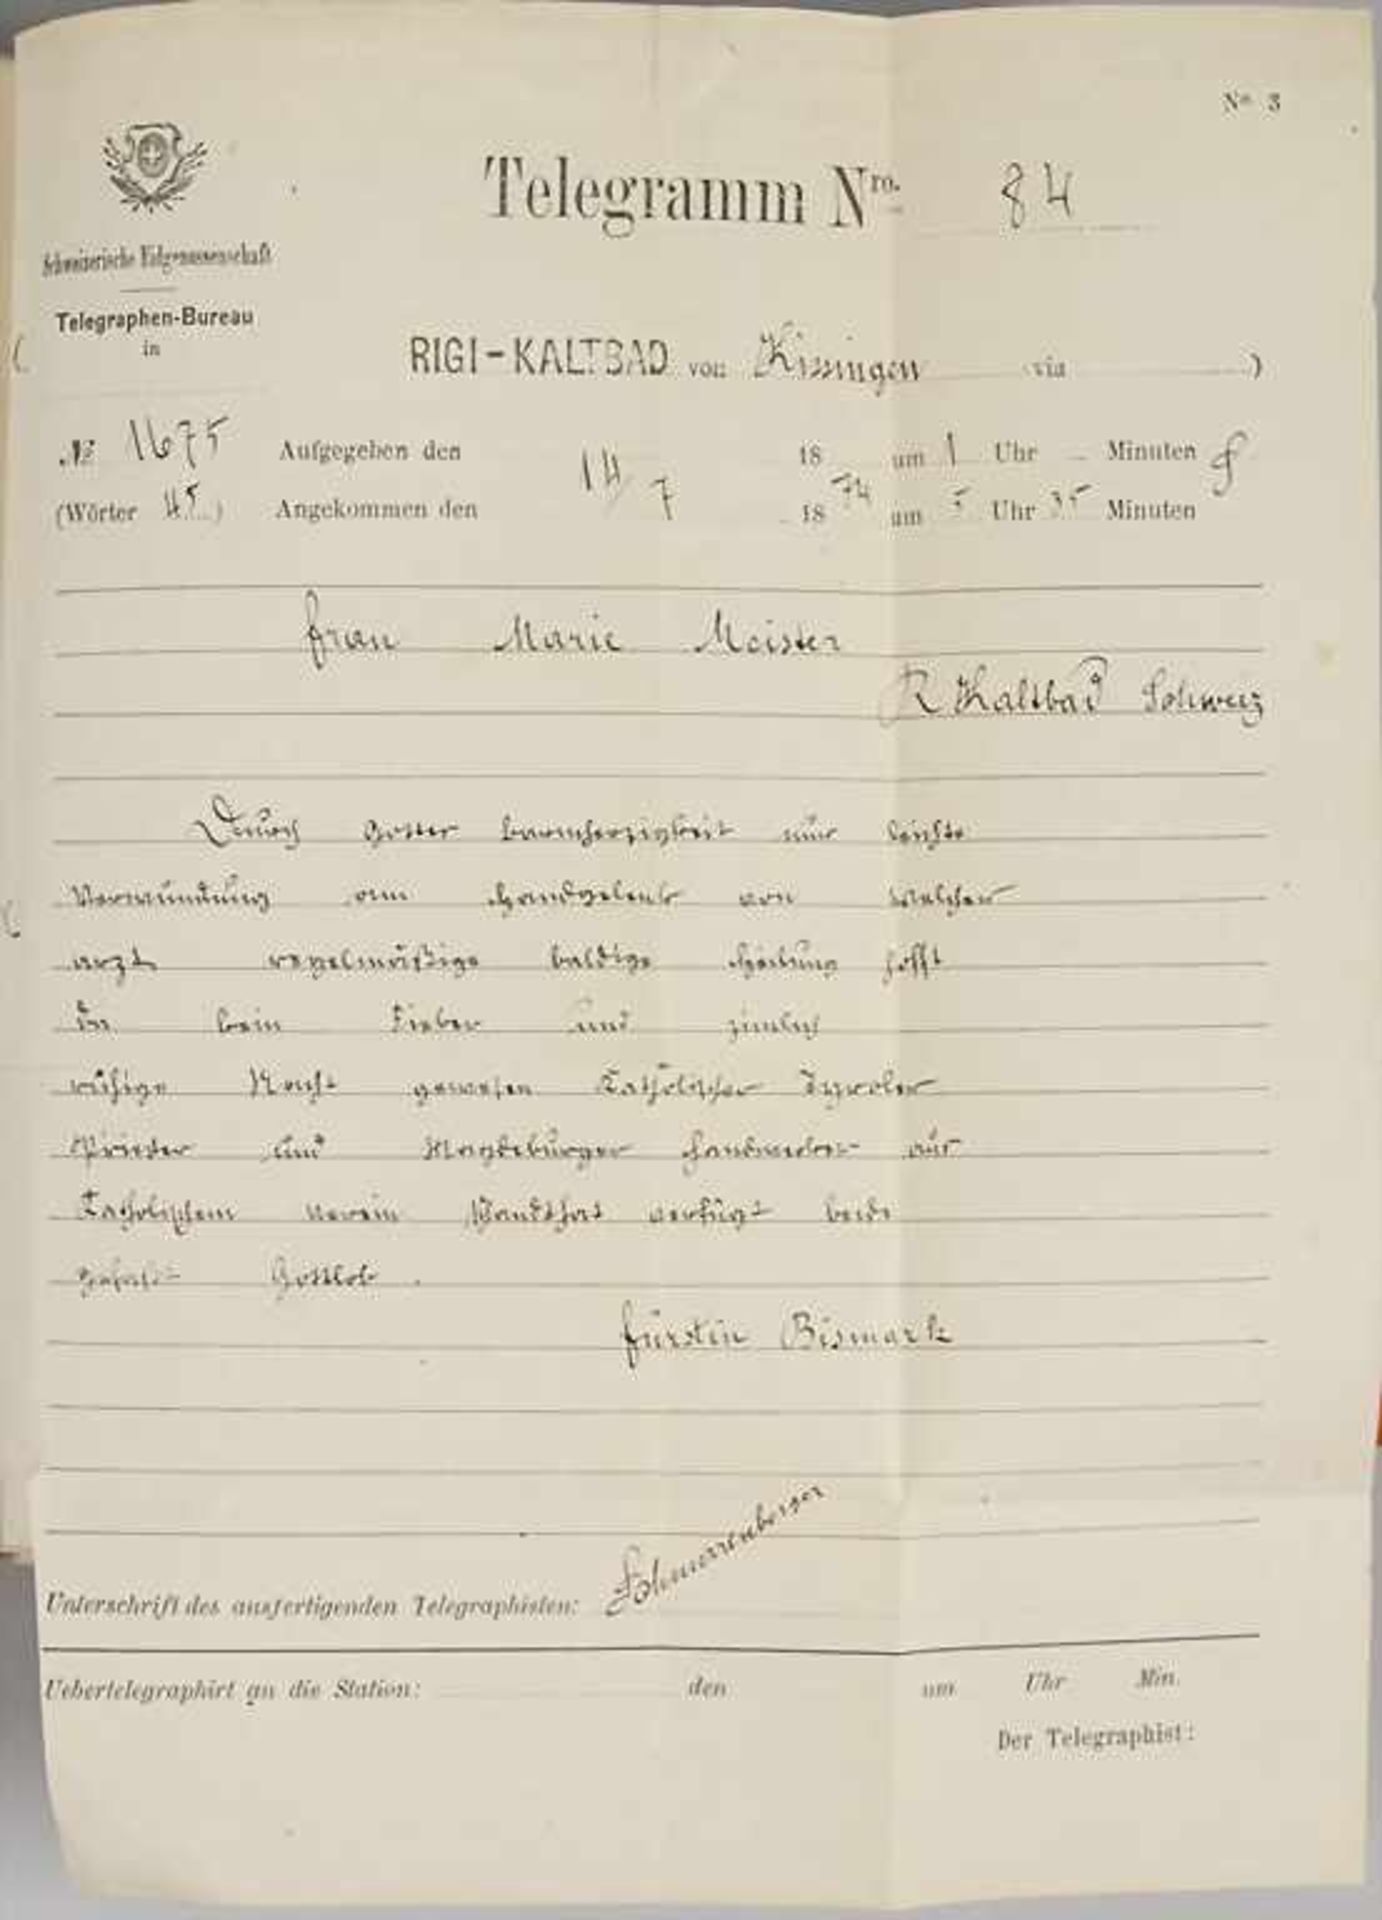 No 3
Telegramm Nro. 84
Schweizerische Eidgenossenschaft
Telegraphen-Bureau
in
RIGI-KALTBAD von Kissingen via )
No 1675 Aufgegeben den 14/7 18 um 1 Uhr Minuten
(Wörter 45) Angekommen den 18 74 um 5 Uhr 35 Minuten
Frau Marie Meister
R Kaltbad Schweiz
Durch Gottes barmherzigkeit nur leichte
Verwundung am Handgelenk von welcher
arzt regelmäßige baldige Heilung hofft
kein Fieber und zimlich
ruhige Nacht gewesen Katholischer Tyroler
Priester und Magdeburger handwerker aus
Katholischem Verein verfügt beide
Gottlob.
Fürstin Bismark
Unterschrift des ausfertigenden Telegraphisten: Schnurrenberger
Uebertelegraphirt an die Station: den um Uhr Min.
Der Telegraphist: